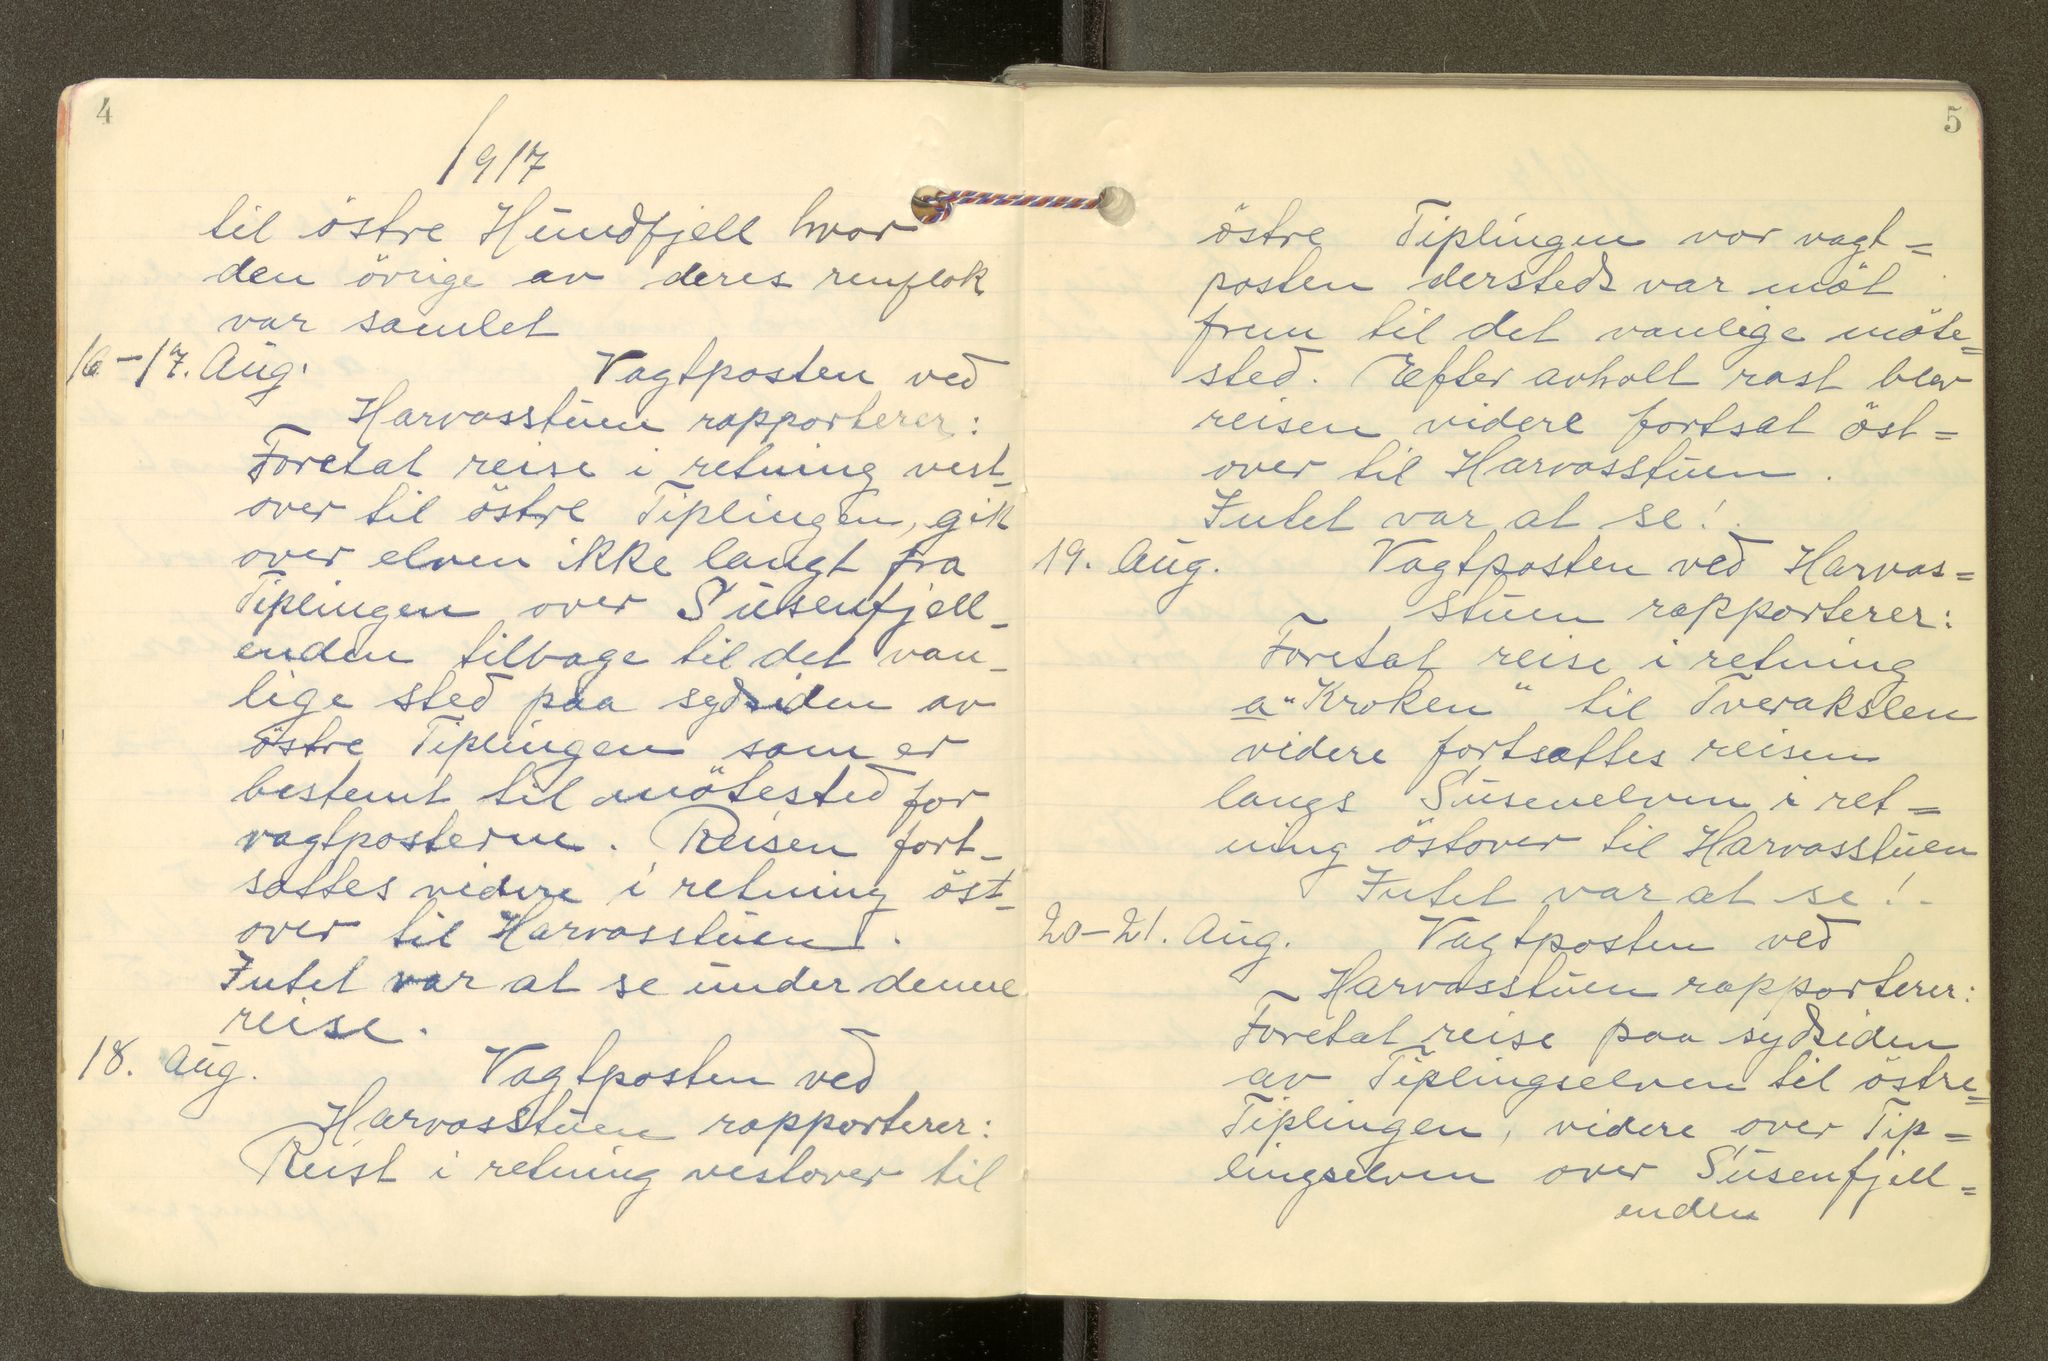 4
1917
til östre Hundfjell hvor
den övrige av deres renflok
var samlet
16-17. Aug. Vagtposten ved
Harvasstuen rapporterer:
Foretat reise i retning vest-
over til östre Tiplingen, gik
over elven ikke langt fra
Tiplingen over Susenfjell-
enden tilbage til det van-
lige sted paa sydsiden av
östre Tiplingen som er
bestemt til mötested for
vagtposterne. Reisen fort-
sattes videre i retning öst-
over til Harvasstuen.
Intet var at se under denne
reise.
18. Aug. Vagtposten ved
Harvasstuen rapporterer:
Reist i retning vestover til
5
östre Tiplingen vor vagt=
posten dersteds var möt
frem til det vanlige möte=
sted. Efter avholt rast blev
reisen videre fortsat öst=
over til Harvasstuen.
Intet var at se!.
19. Aug. Vagtposten ved Harvas=
stuen rapporterer:
Foretat reise i retning
a "Kroken" til Tverakslen
videre fortsattes reisen
langs Susenelven i ret=
ning östover til Harvasstuen
Intet var at se!.
20-21. Aug. Vagtposten ved
Harvasstuen rapporterer:
Foretat reise paa sydsiden
av Tiplingselven til östre=
Tiplingen, videre over Tip=
lingselven over Susenfjell=
enden